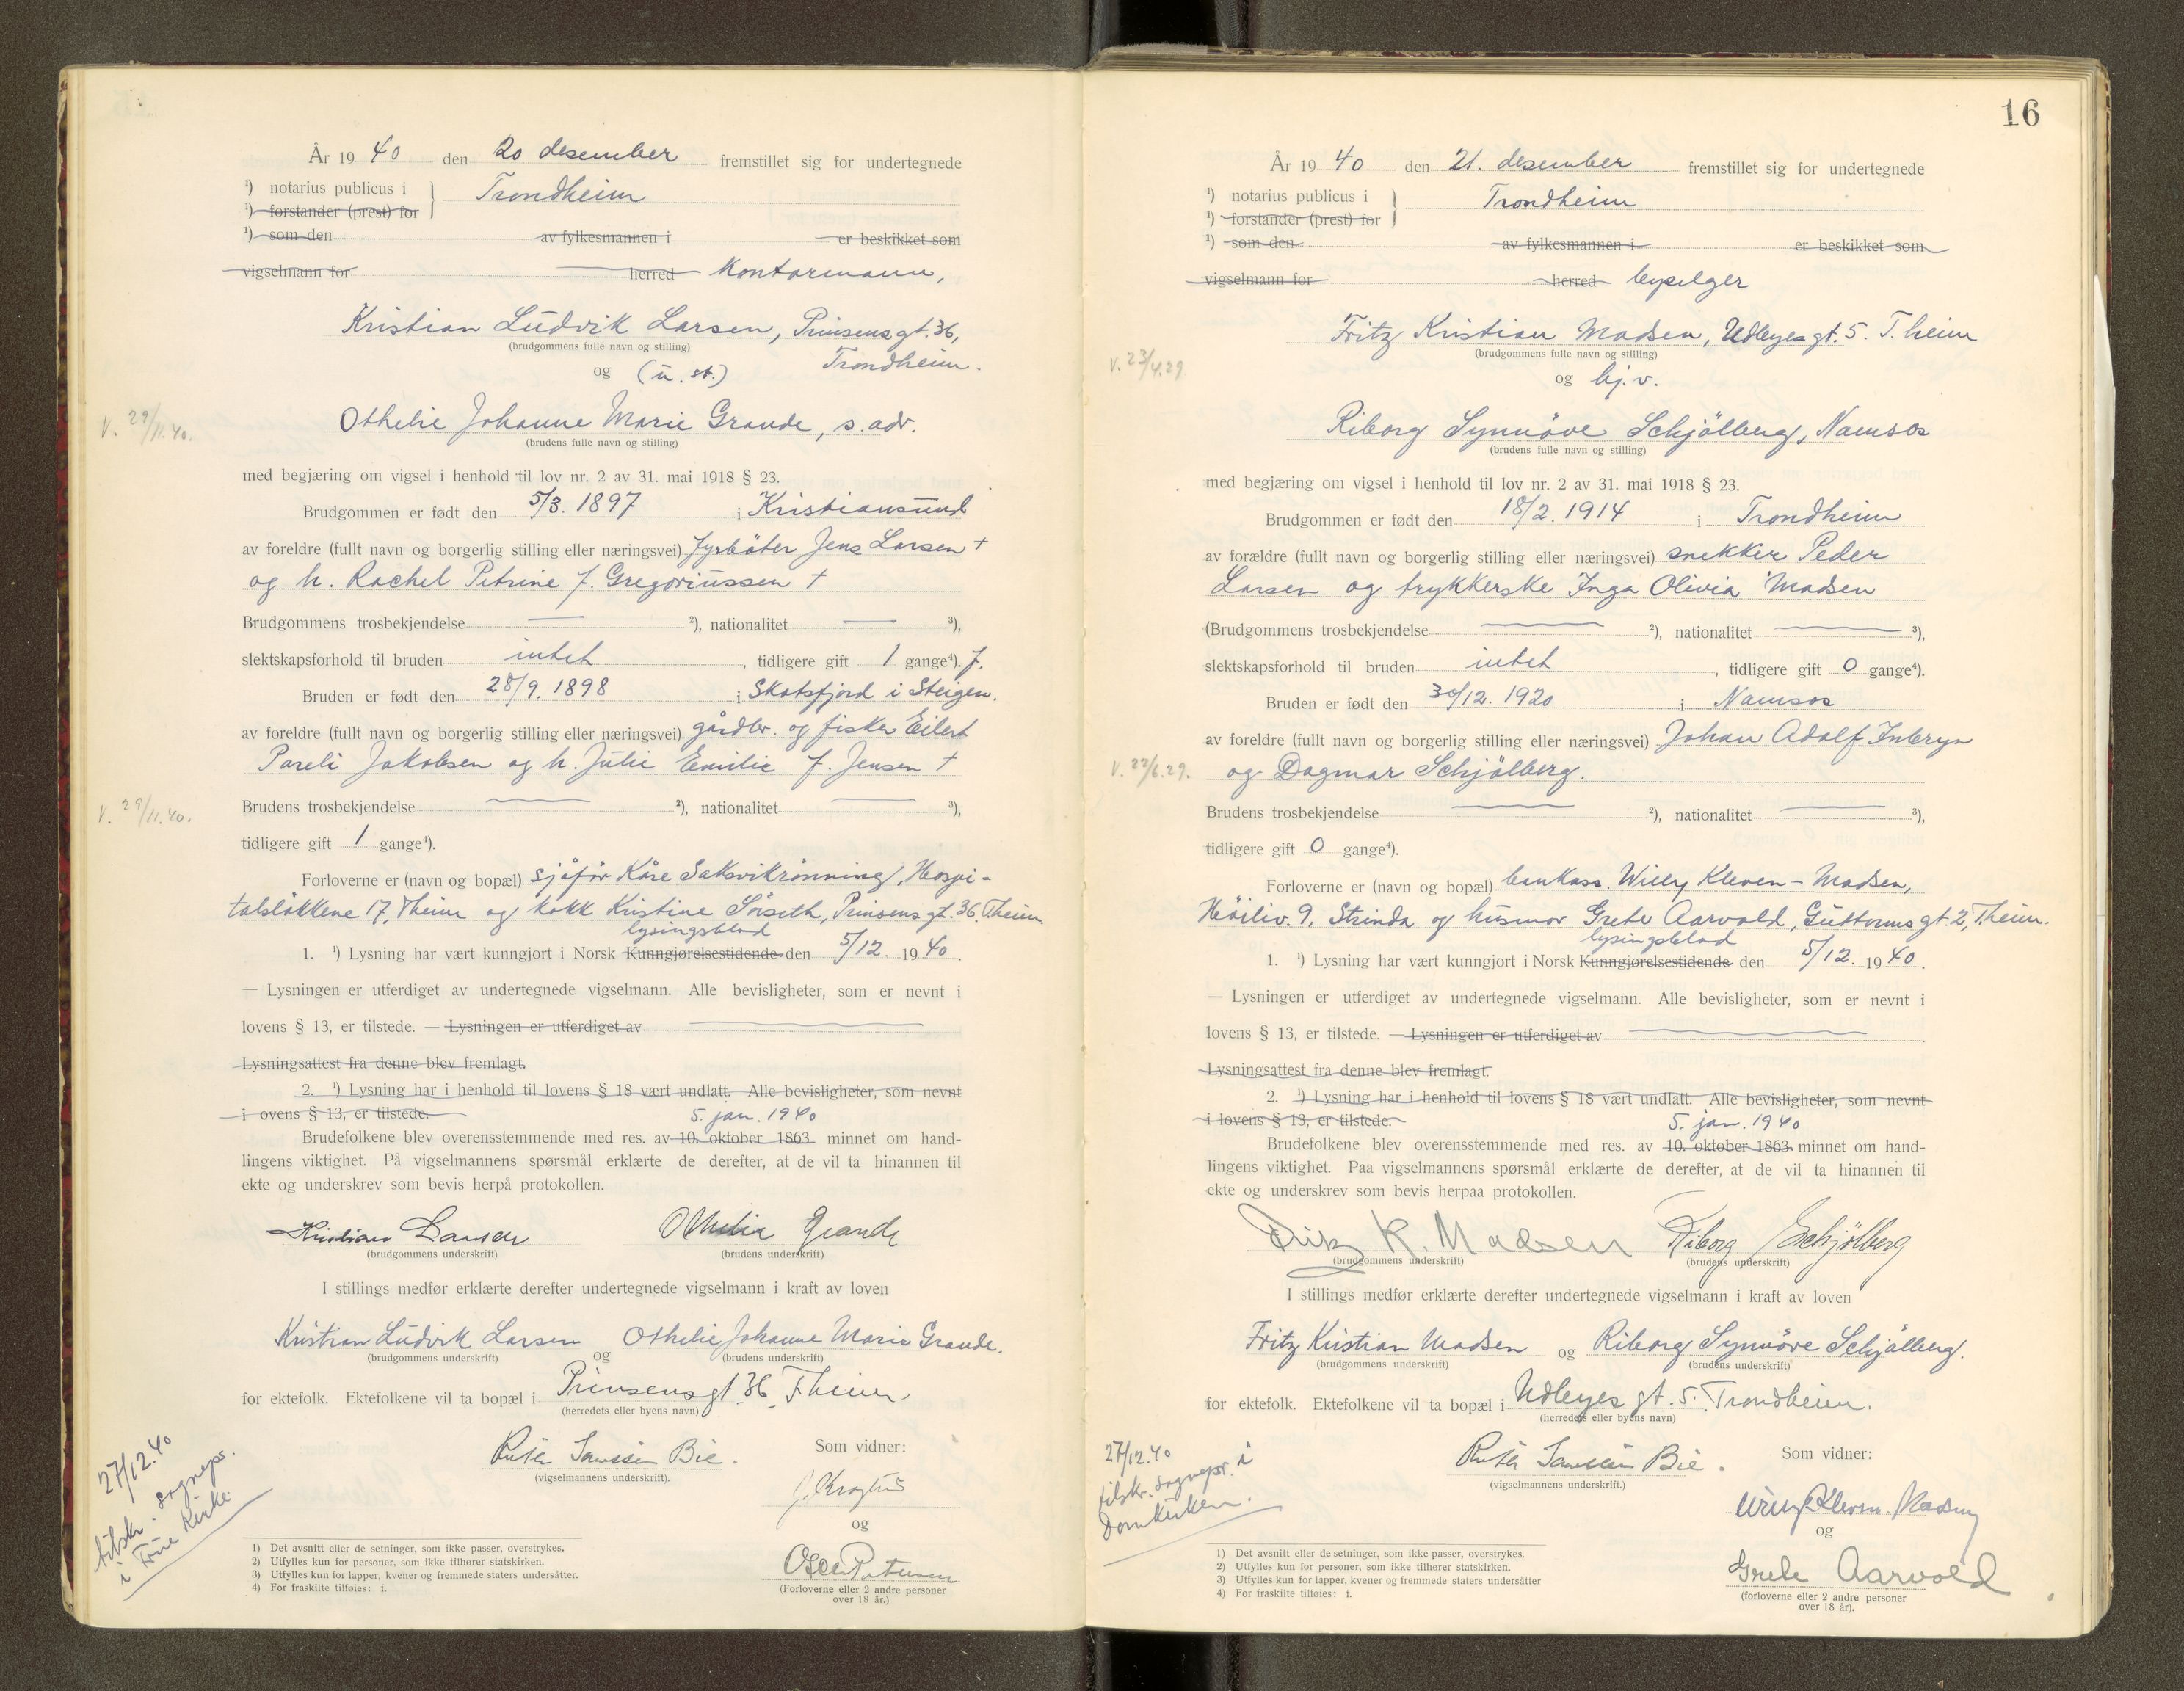 År 19 40 den 20 desember fremstillet sig for undertegnede
¹) notarius publicus i Trondheim
¹) forstander (prest) for
¹) som den av fylkesmannen i er beskikket som
vigselmann for herred Kontormann,
Kristian Ludvik Larsen, Prinsensgt. 36,
(brudgommens fulle navn og stilling)
Trondheim.
og (u. st.)
Othelie Johanne Marie Grande, s. adr.
(brudens fulle navn og stilling)
V. 29/11.40.
med begjæring om vigsel i henhold til lov nr. 2 av 31. mai 1918 § 23.
Brudgommen er født den 5/3. 1897 i Kristiansund
av foreldre (fullt navn og borgerlig stilling eller næringsvei) fyrbøter Jens Larsen †
og h. Rachel Petrine f. Gregoriussen †
Brudgommens trosbekjendelse — ²), nationalitet — ³),
slektskapsforhold til bruden intet, tidligere gift 1 gange⁴). f.
Bruden er født den 28/9. 1898 i Skotsfjord i Steigen.
av foreldre (fullt navn og borgerlig stilling eller næringsvei) gårdbr. og fisker Eilert
Pareli Jakobsen og h. Julie Emilie f. Jensen †
V. 29/11.40.
Brudens trosbekjendelse — ²), nationalitet — ³),
tidligere gift 1 gange⁴).
Forloverne er (navn og bopæl) sjåfør Kåre Saksvikrønning, Hospi-
talsløkkene 17, Theim og kokk Kristine Sörseth, Prinsens gt. 36, Theim
lysingsblad
1. ¹) Lysning har vært kunngjort i Norsk Kunngjørelsestidende den 5/12. 19 40.
— Lysningen er utferdiget av undertegnede vigselmann. Alle bevisligheter, som er nevnt i
lovens § 13, er tilstede. — Lysningen er utferdiget av
Lysningsattest fra denne blev fremlagt.
2. ¹) Lysning har i henhold til lovens § 18 vært undlatt. Alle bevisligheter, som nevnt
i ovens § 13, er tilstede.
5. jan. 1940
Brudefolkene blev overensstemmende med res. av 10. oktober 1863 minnet om hand-
lingens viktighet. På vigselmannens spørsmål erklærte de derefter, at de vil ta hinannen til
ekte og underskrev som bevis herpå protokollen.
Kristian Larsen Othelie Grande
(brudgommens underskrift) (brudens underskrift)
I stillings medfør erklærte derefter undertegnede vigselmann i kraft av loven
Kristian Ludvik Larsen og Othelie Johanne Marie Grande.
(brudgommens underskrift) (brudens underskrift)
for ektefolk. Ektefolkene vil ta bopæl i Prinsensgt. 36, Theim.
(herredets eller byens navn)
Ruth Janssen Bie.
(vigselmannens underskrift).
Som vidner:
og
(Forloverne eller 2 andre personer
over 18 år.)
27/12.40
tilskr. sognepr.
i Frue Kirke.
1) Det avsnitt eller de setninger, som ikke passer, overstrykes.
2) Utfylles kun for personer, som ikke tilhører statskirken.
3) Utfylles kun for lapper, kvener og fremmede staters undersåtter.
4) For fraskilte tilføies: f.
16
År 19 40 den 21. desember fremstillet sig for undertegnede
¹) notarius publicus i Trondheim
¹) forstander (prest) for
¹) som den av fylkesmannen i er beskikket som
vigselmann for herred
Fritz Kristian Madsen, Udbyes gt. 5. T.heim
(brudgommens fulle navn og stilling)
V. 23/4.29.
og hj. v.
Riborg Synnöve Schjölberg, Namsos
(brudens fulle navn og stilling)
med begjæring om vigsel i henhold til lov nr. 2 av 31. mai 1918 § 23.
Brudgommen er født den 18/2. 1914 i Trondheim
av forældre (fullt navn og borgerlig stilling eller næringsvei) snekker Peder
Larsen og trykkerske Inga Olivia Madsen
(Brudgommens trosbekjendelse — ²), nationalitet — ³),
slektskapsforhold til bruden intet, tidligere gift 0 gange⁴).
Bruden er født den 30/12. 1920 i Namsos
av foreldre (fullt navn og borgerlig stilling eller næringsvei) Johan Adolf Inbryn
og Dagmar Schjölberg.
V. 22/6.29.
Brudens trosbekjendelse — ²), nationalitet — ³),
tidligere gift 0 gange⁴).
Forloverne er (navn og bopæl) bankass. Willy Kleven-Madsen,
Höiliv. 9, Strinda og husmor Grete Aarvold, Guttorms gt. 2, T.heim.
lysingsblad
1. ¹) Lysning har vært kunngjort i Norsk Kunngjørelsestidende den 5/12. 19 40.
— Lysningen er utferdiget av undertegnede vigselmann. Alle bevisligheter, som er nevnt i
lovens § 13, er tilstede. — Lysningen er utferdiget av
Lysningsattest fra denne blev fremlagt.
2. ¹) Lysning har i henhold til lovens § 18 vært undlatt. Alle bevisligheter, som nevnt
i lovens § 13, er tilstede.
5. jan. 1940
Brudefolkene blev overensstemmende med res. av 10. oktober 1863 minnet om hand-
lingens viktighet. Paa vigselmannens spørsmål erklærte de derefter, at de vil ta hinannen til
ekte og underskrev som bevis herpaa protokollen.
Fritz K. Madsen Riborg Schjölberg
(brudgommens underskrift) (brudens underskrift)
I stillings medfør erklærte derefter undertegnede vigselmann i kraft av loven
Fritz Kristian Madsen og Riborg Synnöve Schjölberg.
(brudgommens underskrift) (brudens underskrift)
for ektefolk. Ektefolkene vil ta bopæl i Udbyes gt. 5. Trondheim.
(herredets eller byens navn)
Ruth Janssen Bie.
(vigselmannens underskrift.)
Som vidner:
Willy Kleven-Madsen
og
Grete Aarvold
(forloverne eller 2 andre personer
over 18 år).
27/12.40
tilskr. sognepr. i
Domkirken.
1) Det avsnitt eller de setninger, som ikke passer, overstrykes.
2) Utfylles kun for personer, som ikke tilhører statskirken.
3) Utfylles kun for lapper, kvener og fremmede staters undersåtter
4) For fraskilte tilføies: f.